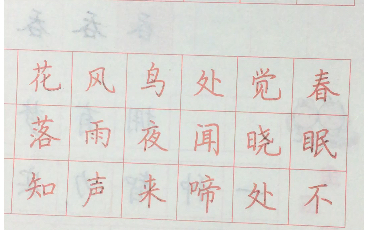 春眠不
觉晓处
处闻啼
鸟夜来
风雨声
花落知